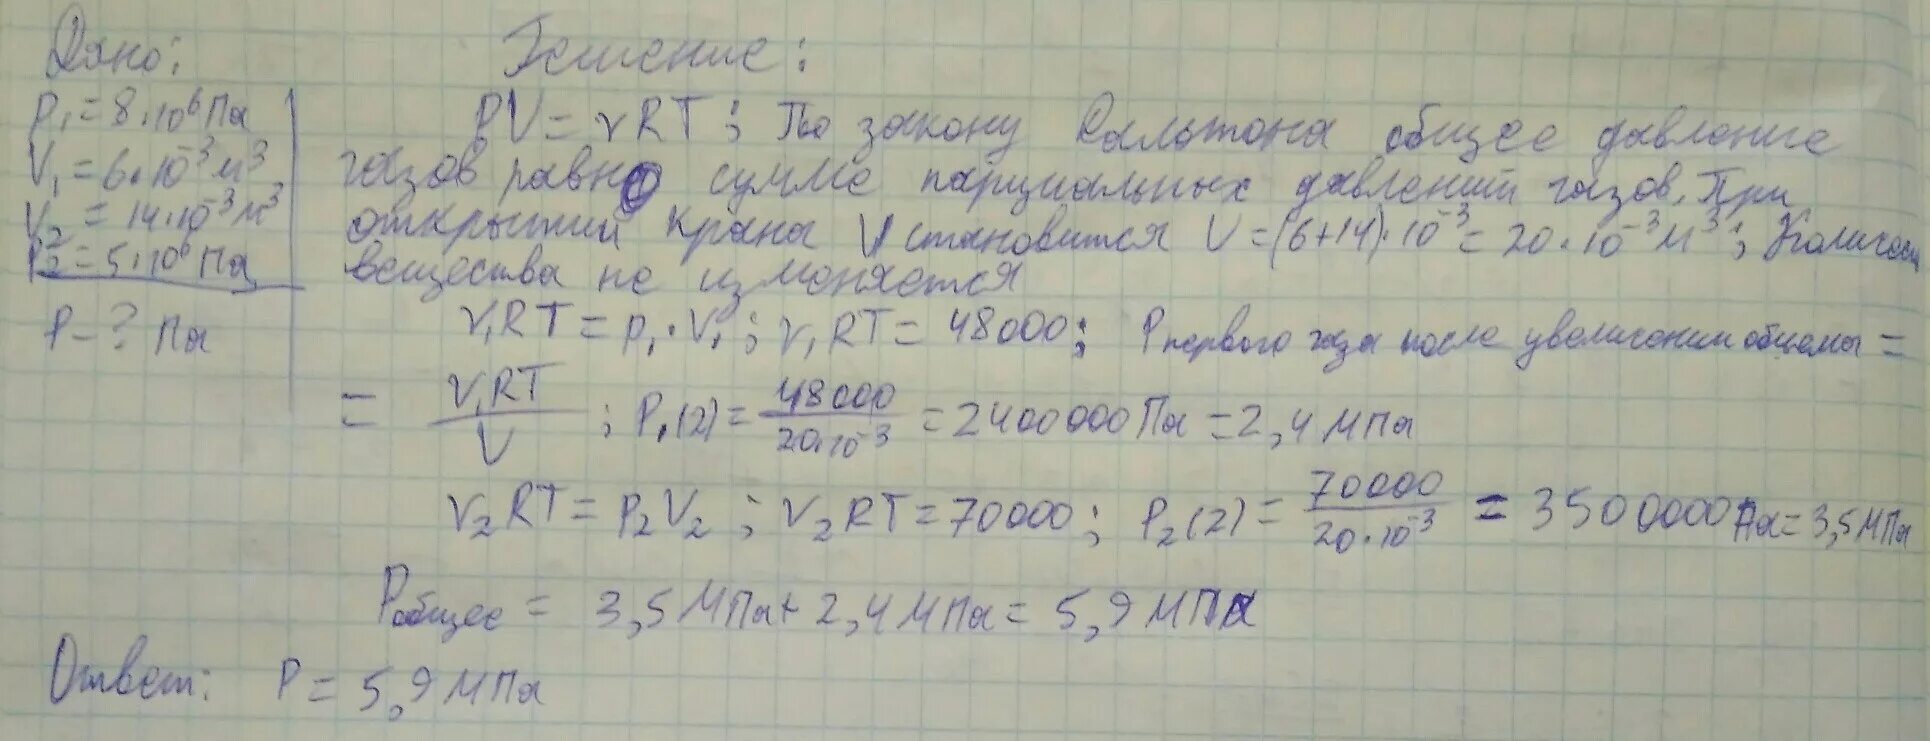 Дано:
Решение:
P₁ = 8·10⁶ Па
V₁ = 6·10⁻³ м³
V₂ = 14·10⁻³ м³
P₂ = 5·10⁶ Па
P - ? Па
PV = νRT; По закону Дальтона общее давление
газов равно сумме парциальных давлений газов. При
открытии крана V становится V = (6+14)·10⁻³ = 20·10⁻³ м³; Количест
вещества не изменяется
ν₁RT = p₁·V₁; ν₁RT = 48000; P первого газа после увеличении объема =
= ν₁RT / V; P₁(2) = 48000 / 20·10⁻³ = 2400000 Па = 2,4 МПа
ν₂RT = P₂V₂; ν₂RT = 70000; P₂(2) = 70000 / 20·10⁻³ = 3500000 Па = 3,5 МПа
Pобщее = 3,5 МПа + 2,4 МПа = 5,9 МПа
Ответ: P = 5,9 МПа